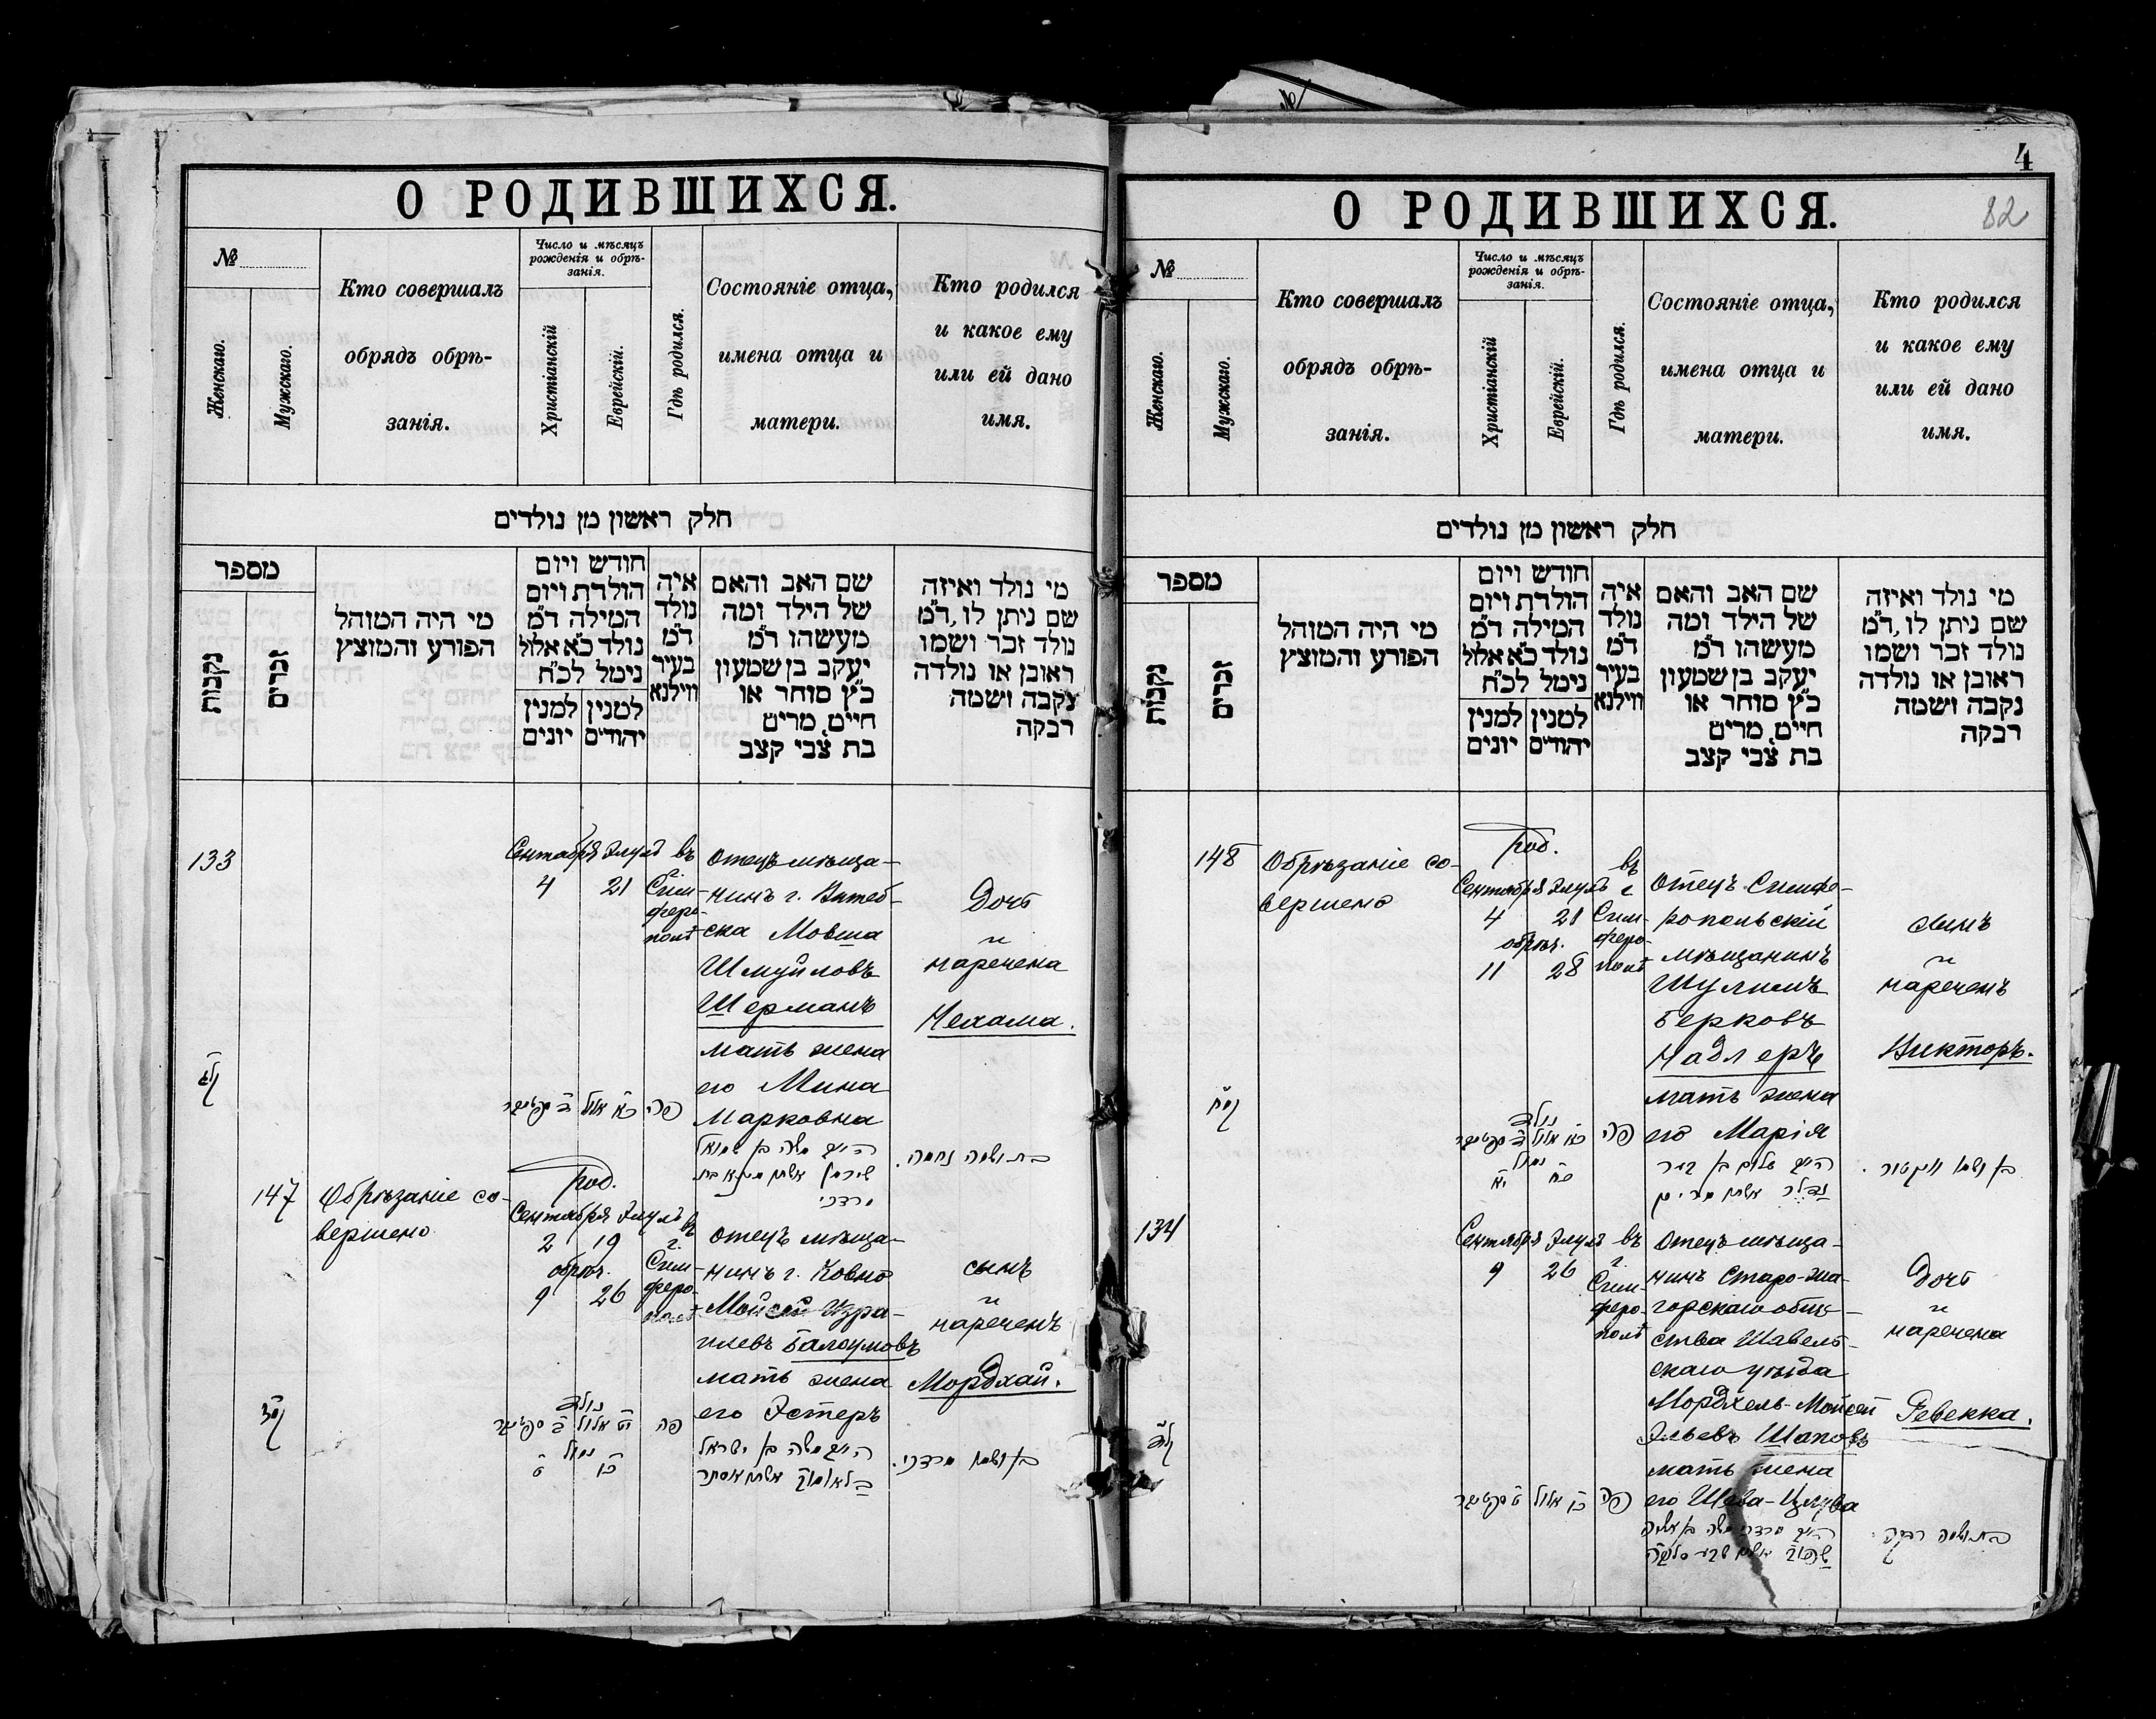 О РОДИВШИХСЯ.
№
Женскаго.
Мужскаго.
Кто совершалъ
обрядъ обрѣ-
занія.
Число и мѣсяцъ
рожденія и обрѣ-
занія.
Христіанскій
Еврейскій.
Гдѣ родился.
Состояніе отца,
имена отца и
матери.
Кто родился
и какое ему
или ей дано
имя.
חלק ראשון מן נולדים
מספר
נקבות
זכרים
מי היה המוהל
הפורע והמוצץ
חודש ויום
הולדת ויום
המילה ד״מ
נולד כ״א אלול
נימל לכ״ח
למנין יונים
למנין יהודים
איה
נולד
ד״מ
בעיר
ווילנא
שם האב והאם
של הילד ומה
מעשהו ד״מ
יעקב בן שמעון
כ״ץ סוחר או
חייט, מרים
בת צבי קצב
מי נולד ואיזה
שם ניתן לו, ד״מ
נולד זכר ושמו
ראובן או נולדה
נקבה ושמה
רבקה
133
Сентября Элулъ въ
4 21
г.
Сим-
феро-
полѣ
Отецъ мѣща-
нинъ г. Витеб-
ска Мовша
Шмуйловъ
Шерманъ
мать жена
его Мина
Марковна
Дочь
и
наречена
Нехама.
קלג
כ״א אלול
פה
משה בן שמואל
שירמן
מרדכי
בת ושמה נחמה.
147
Обрѣзаніе со-
вершено
Род.
Сентября Элулъ въ
2 19
обрѣз.
9 26
г.
Сим-
феро-
полѣ
Отецъ мѣща-
нинъ г. Ковно
Мойсей Изра-
илевъ Балоумовъ
мать жена
его Эстеръ
сынъ
и
нареченъ
Мордхай.
קמז
נולד
י״ט אלול
נימול
כ״ו ט׳
פה
משה בן ישראל
אסתר
בן ושמו מרדכי.
4
82
О РОДИВШИХСЯ.
№
Женскаго.
Мужскаго.
Кто совершалъ
обрядъ обрѣ-
занія.
Число и мѣсяцъ
рожденія и обрѣ-
занія.
Христіанскій
Еврейскій.
Гдѣ родился.
Состояніе отца,
имена отца и
матери.
Кто родился
и какое ему
или ей дано
имя.
חלק ראשון מן נולדים
מספר
נקבות
זכרים
מי היה המוהל
הפורע והמוצץ
חודש ויום
הולדת ויום
המילה ד״מ
נולד כ״א אלול
נימל לכ״ח
למנין יונים
למנין יהודים
איה
נולד
ד״מ
בעיר
ווילנא
שם האב והאם
של הילד ומה
מעשהו ד״מ
יעקב בן שמעון
כ״ץ סוחר או
חייט, מרים
בת צבי קצב
מי נולד ואיזה
שם ניתן לו, ד״מ
נולד זכר ושמו
ראובן או נולדה
נקבה ושמה
רבקה
148
Обрѣзаніе со-
вершено
Род.
Сентября Элулъ
4 21
обрѣз.
11 28
въ
г.
Сим-
феро-
полѣ
Отецъ Симфе-
ропольскій
мѣщанинъ
Шулимъ
Берковъ
Надлеръ
мать жена
его Марія
сынъ
и
нареченъ
Викторъ.
קמח
נולד
כ״א אלול
נימול
כ״ח י״א
פה
שלום בן
נדלר
מרים
בן ושמו וויקטור.
134
Сентября Элулъ въ
9 26
г.
Сим-
феро-
полѣ
Отецъ мѣща-
нинъ Старо-жа-
горскаго обще-
ства Шавель-
скаго уѣзда
Мордхель-Мойсей
Эльевъ Шаповъ
мать жена
его
Дочь
и
наречена
Ревекка.
קלד
כ״ו אלול
פה
מרדכי משה בן אליה
בת ושמה רבקה